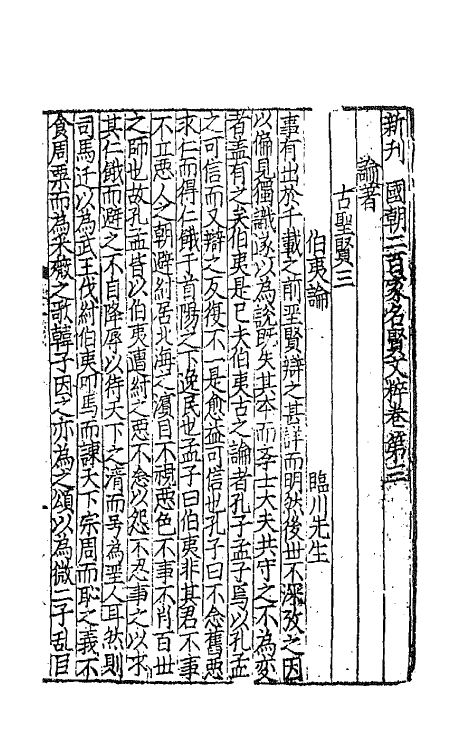 新刊國朝二百家名賢文粹卷第三
論著
古聖賢三
伯夷論 臨川先生
事有出於千載之前聖賢辯之甚詳而明然後世不深攷之因
以偏見獨識遂以為說既失其本而學士大夫共守之不為變
者蓋有之矣伯夷是已夫伯夷古之論者孔子孟子焉以孔孟
之可信而又辯之反復不一是愈益可信也孔子曰不念舊惡
求仁而得仁餓于首陽之下逸民也孟子曰伯夷非其君不事
不立惡人之朝避紂居北海之濵目不視惡色不事不肖百世
之師也故孔孟皆以伯夷遭紂之惡不念以怨不忍事之以求
其仁餓而避之不自降辱以待天下之清而号為聖人耳然則
司馬迁以為武王伐紂伯夷叩馬而諫天下宗周而恥之義不
食周粟而為采薇之歌韓子因之亦為之頌以為微二子乱臣